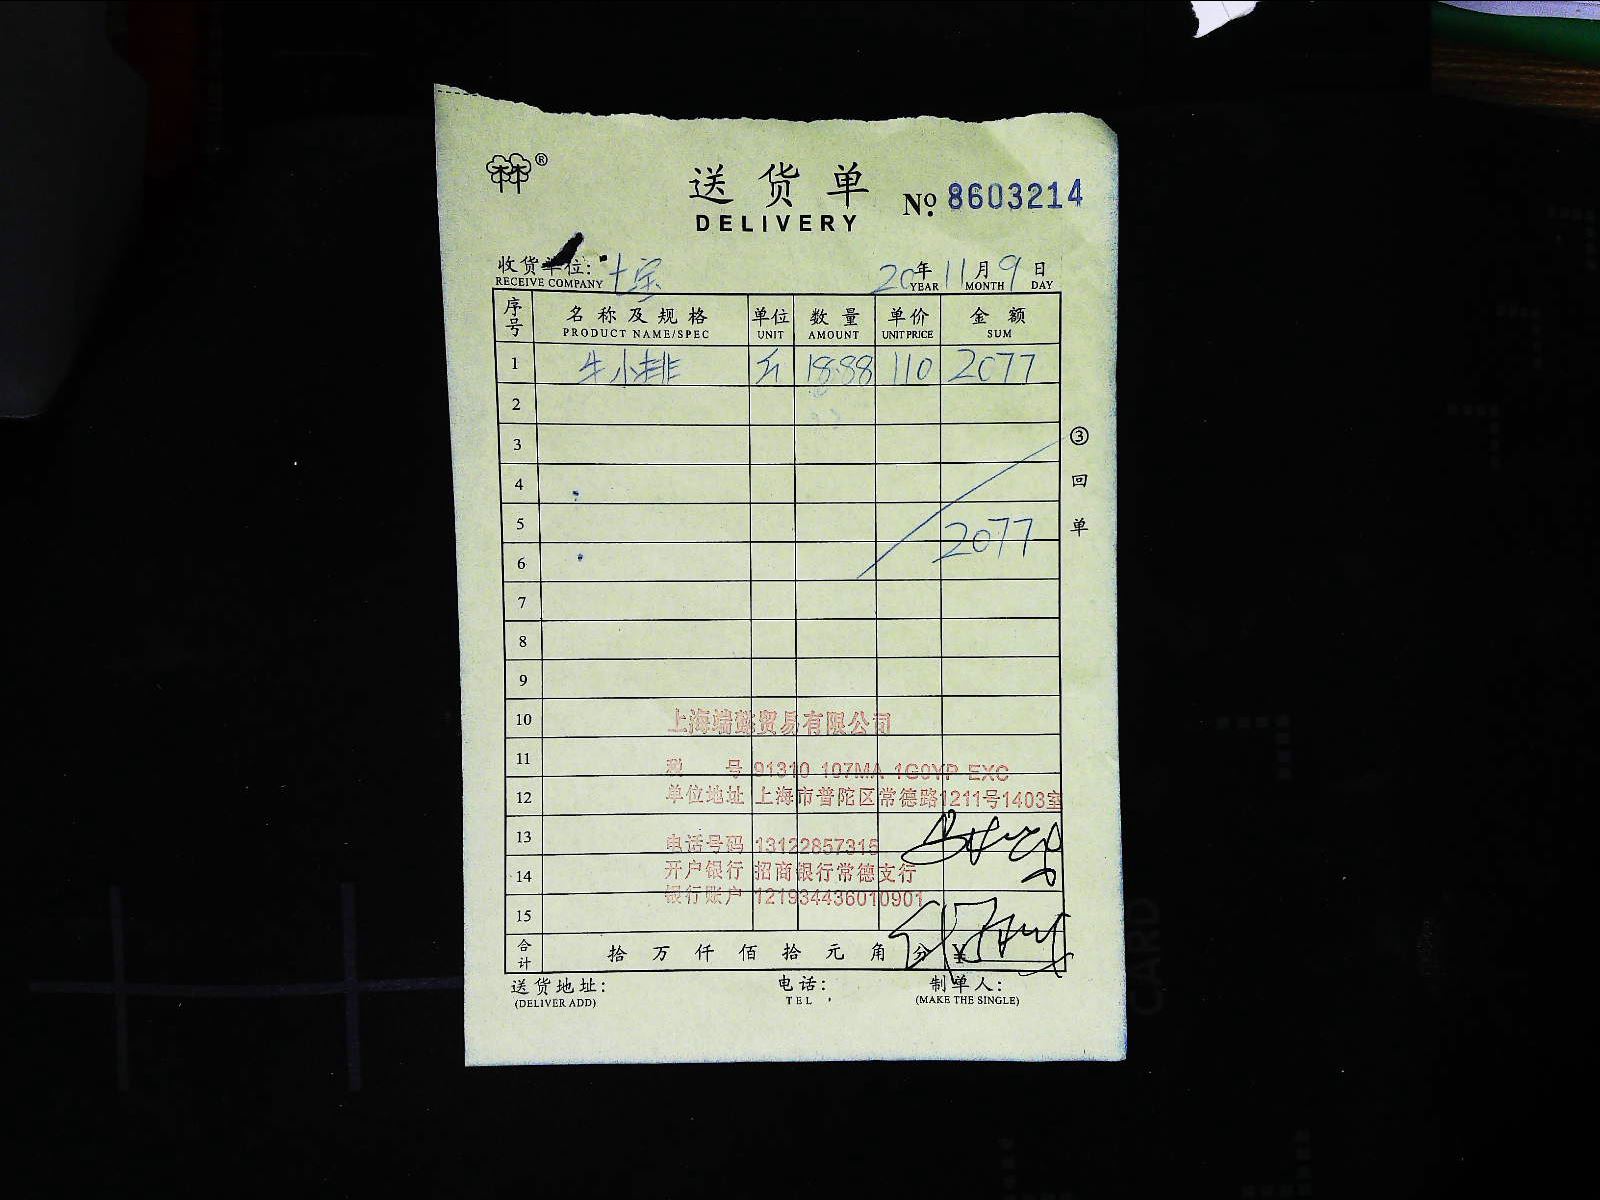 林®
送货单
DELIVERY
No. 8603214
收货单位: 七宝 20年11月9日
RECEIVE COMPANY YEAR MONTH DAY
序号 名称及规格 单位 数量 单价 金额
PRODUCT NAME/SPEC UNIT AMOUNT UNIT PRICE SUM
1 牛小排 斤 18.88 110 2077
2
3
4
5 2077
6
7
8
9
10
11
12
13
14
15
③回单
税 号 91310 107MA 1G0YP EXC
单位地址 上海市普陀区常德路1211号1403室
电话号码 13122857315
开户银行 招商银行常德支行
银行账户 121934436010901
合计 拾 万 仟 佰 拾 元 角 分 ¥
送货地址: 电话: 制单人:
(DELIVER ADD) TEL (MAKE THE SINGLE)